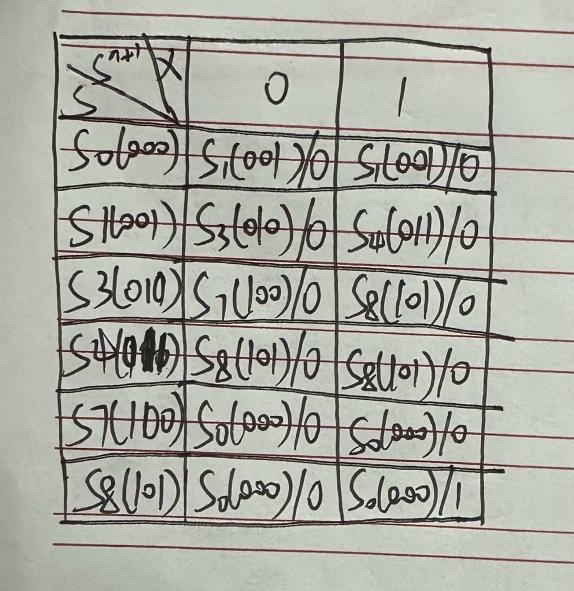 S^{n+1} X 0 1
S
S0(000) S1(001)/0 S1(001)/0
S1(001) S3(010)/0 S4(011)/0
S3(010) S7(100)/0 S8(101)/0
S4( S8(101)/0 S8(101)/0
S7(100) S0(000)/0 S0(000)/0
S8(101) S0(000)/0 S0(000)/1